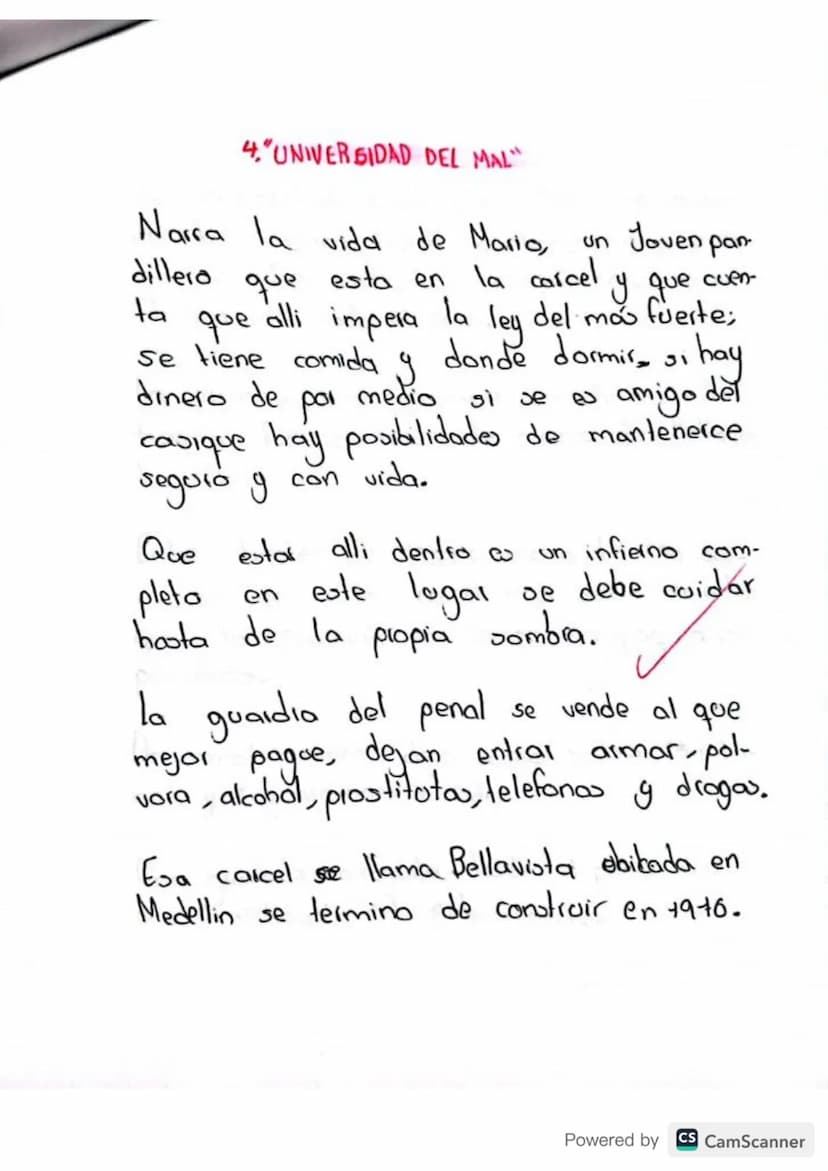 4."UNIVERSIDAD DEL MAL"
Narra la vida de Mario, un Joven pan-
dillero que esta en la carcel y que cuen-
ta que alli impera la ley del más fuerte;
se tiene comida y donde dormir, si hay
dinero de por medio si se es amigo del
casique hay posibilidades de mantenerce
seguro y con vida.
Que estar alli dentro es un infierno com-
pleto en este lugar se debe cuidar
hasta de la propia sombra.
la guardia del penal se vende al que
mejor pague, dejan entrar armar, pol-
vora, alcohol, prostitutas, telefonos y drogas.
Esa carcel se llama Bellavista ubikada en
Medellin se termino de construir en 1976.
Powered by CS CamScanner